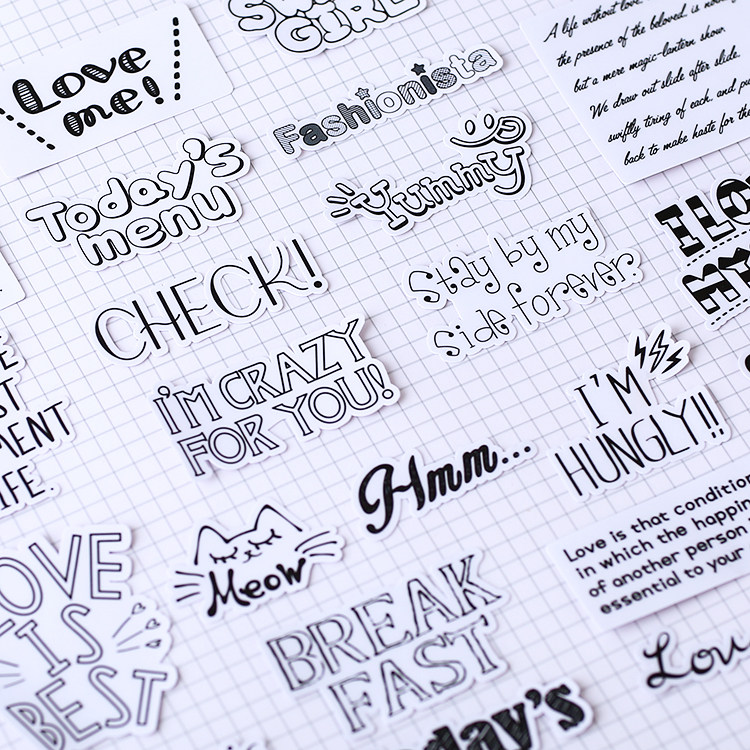 GIRL
Love
me!
Fashionista
A life without love,
the presence of the beloved, is
but a mere magic-lantern show.
We draw out slide after slide,
swiftly tiring of each, and
back to make haste for the
Today's
menu
Yummy
CHECK!
Stay by my
side forever.
I
I'M CRAZY
FOR YOU!
I'M
HUNGLY!!
Hmm...
Meow
Love is that condition
in which the
of another person
essential to your
IS
BEST
BREAK
FAST